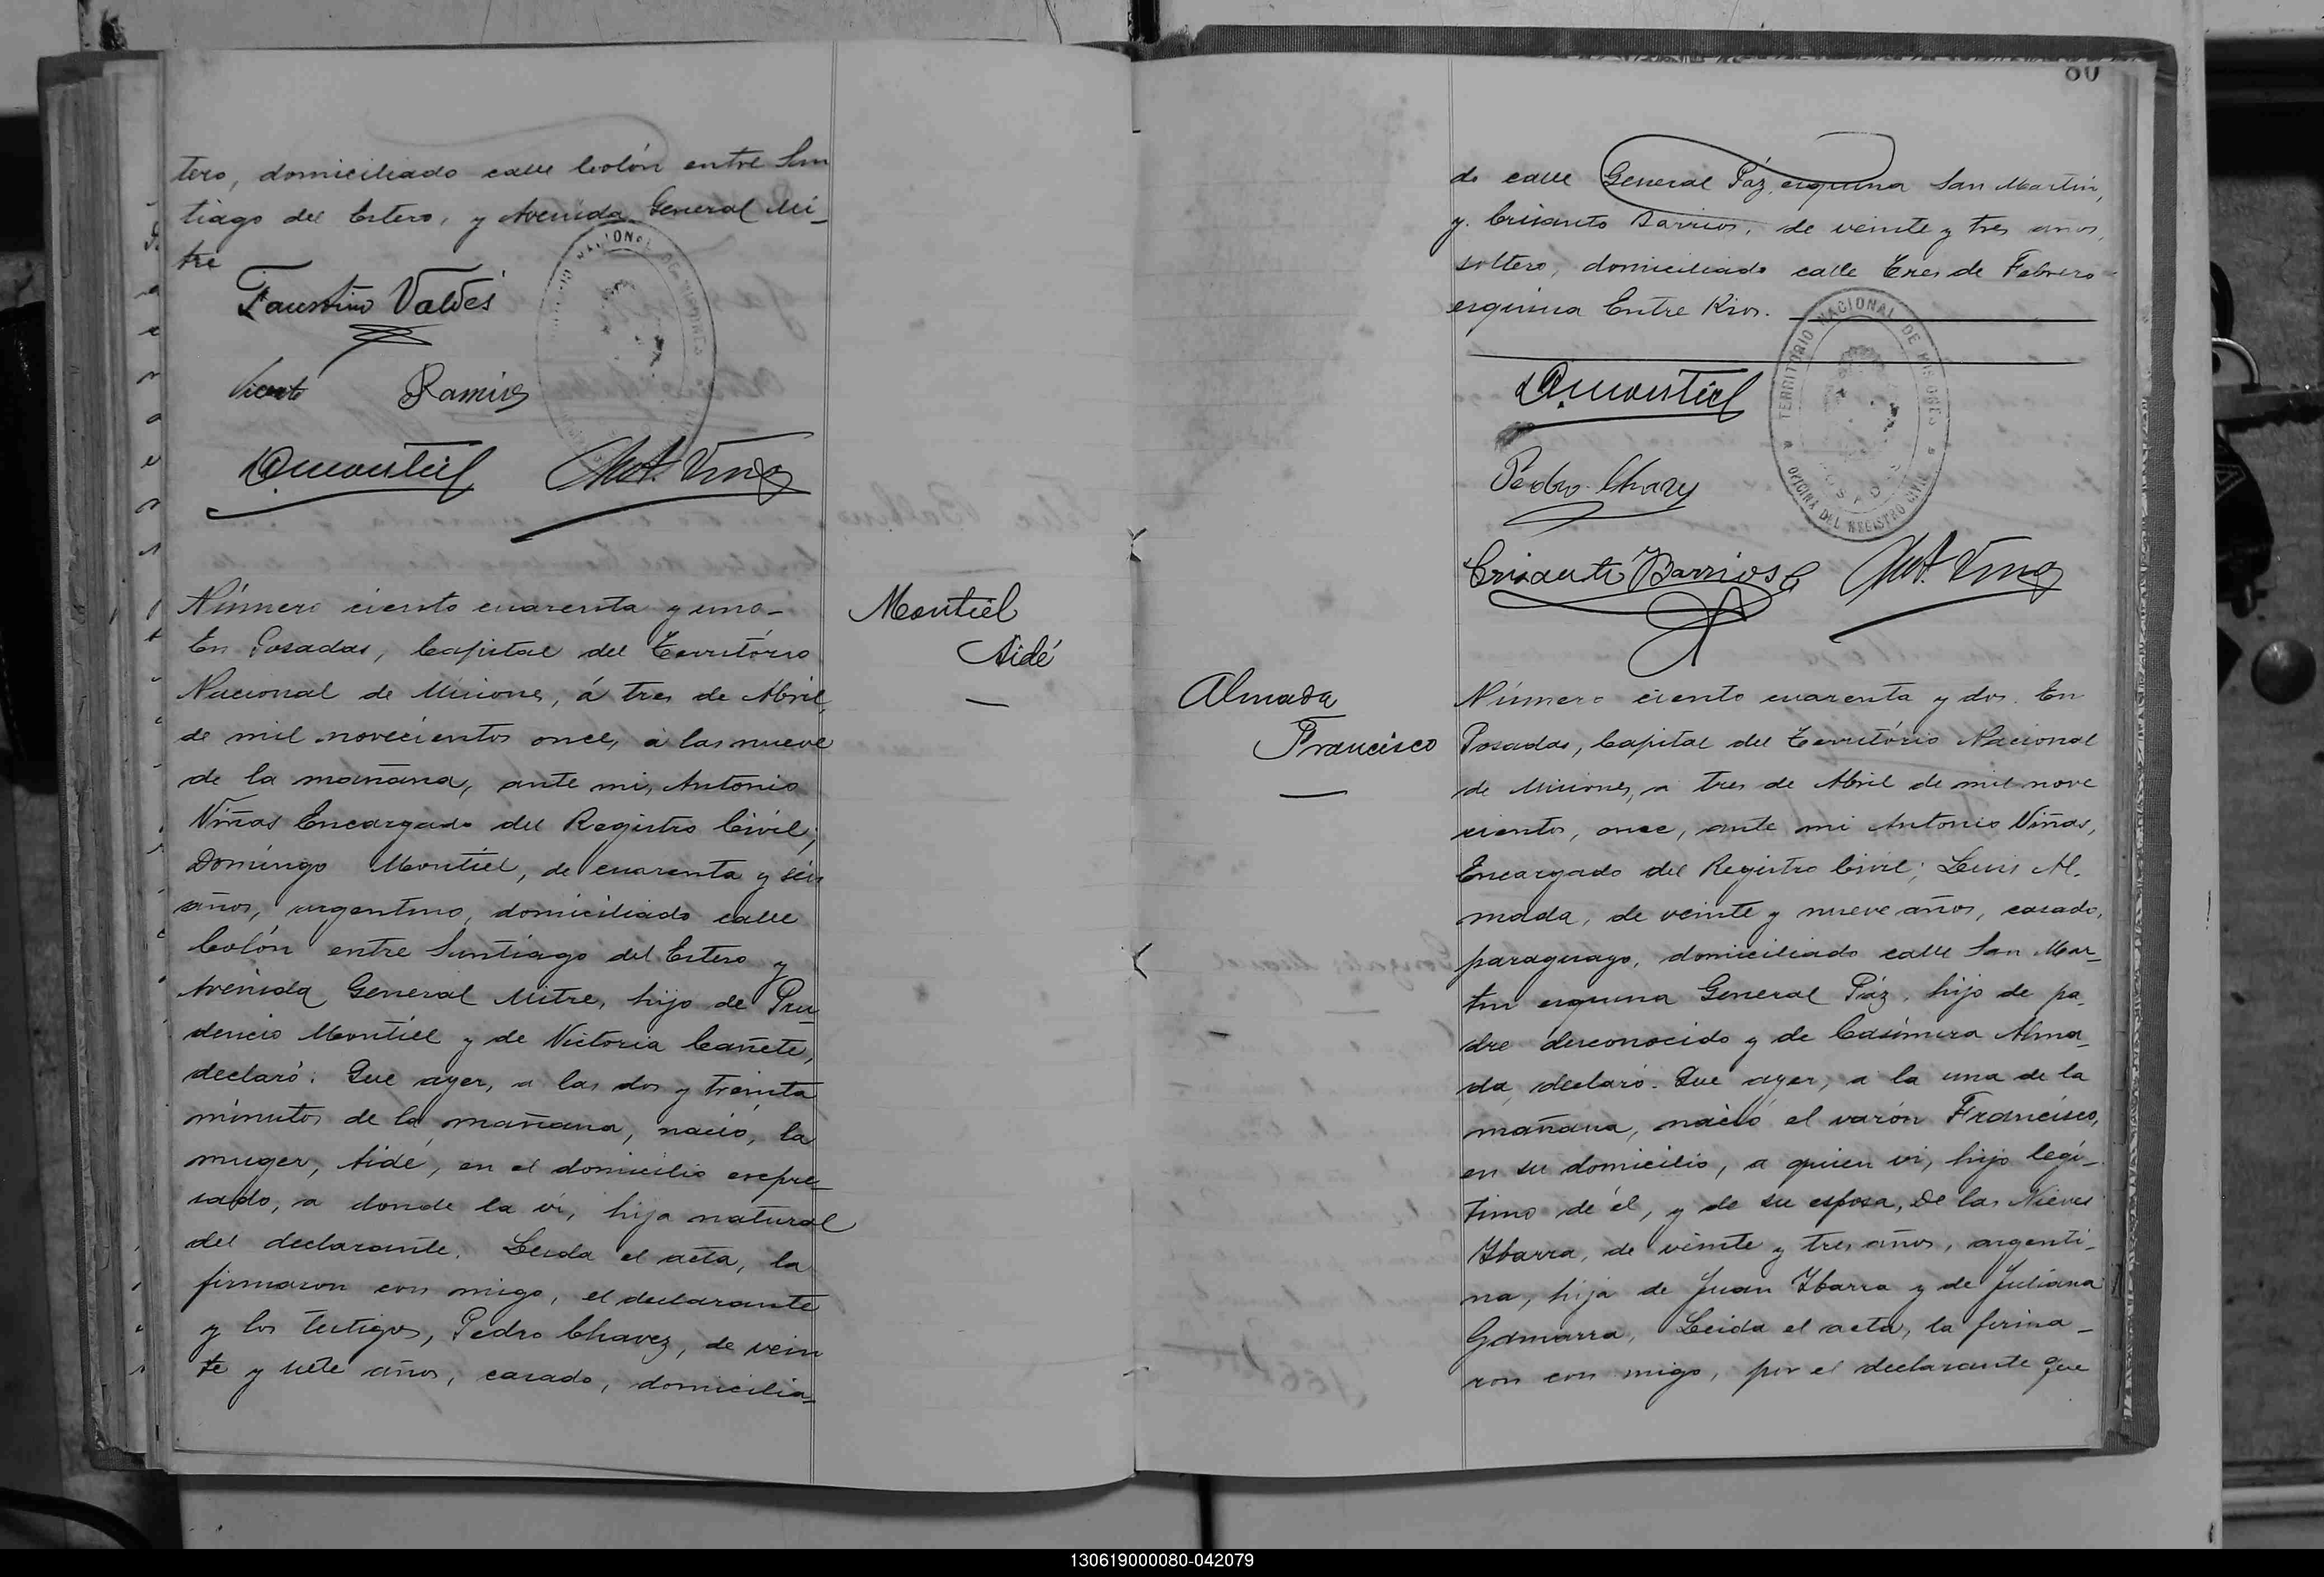 tero, domiciliado calle Colón entre San
tiago del Estero, y Avenida General Mi-
tre
Faustino Valdés
Vicente Ramires
DMontiel Ant. Viñas
Número ciento cuarenta y uno-
En Posadas, Capital del Território
Nacional de Misiones, á tres de Abril,
de mil novecientos once, á las nueve
de la mañana, ante mi, Antonio
Viñas Encargado del Registro Civil;
Domingo Montiel, de cuarenta y seis
años, argentino, domiciliado calle
Colón entre Santiago del Estero y
Avenida General Mitre, hijo de Pru-
dencio Montiel y de Victoria Cañete,
declaró: Que ayer, a las dos y treinta
minutos de la mañana, nació, la
muger, Aidé, en el domicilio expre-
sado, a donde la ví, hija natural
del declarante. Leida el acta, la
firmaron con migo, el declarante
y los testigos, Pedro Chavez, de vein
te y siete años, casado, domicilia-
Montiel
Aidé
80
do calle General Páz, esquina San Martin,
y Crisanto Barrios, de veinte y tres años,
soltero, domiciliado calle Tres de Febrero
esquina Entre Rios.
TERRITORIO NACIONAL DE MISIONES
POSADAS
OFICINA DEL REGISTRO CIVIL
DMontiel
Pedro Chavez
Crisanto Barrios Ant. Viñas
Almada
Francisco
Número ciento cuarenta y dos. En
Posadas, Capital del Território Nacional
de Misiones, a tres de Abril de mil nove
cientos, once, ante mi Antonio Viñas,
Encargado del Registro Civil; Luis Al-
mada, de veinte y nueve años, casado,
paraguayo, domiciliado calle San Mar-
tin esquina General Páz, hijo de pa-
dre desconocido y de Casimira Alma-
da, declaró. Que ayer, a la una de la
mañana, nació el varón Francisco,
en su domicilio, a quien ví, hijo legí-
timo de él, y de su esposa, De las Nieves
Ybarra, de veinte y tres años, argenti-
na, hija de Juan Ybarra y de Juliana
Gamarra, Leida el acta, la firma-
ron con migo, por el declarante que
130619000080-042079